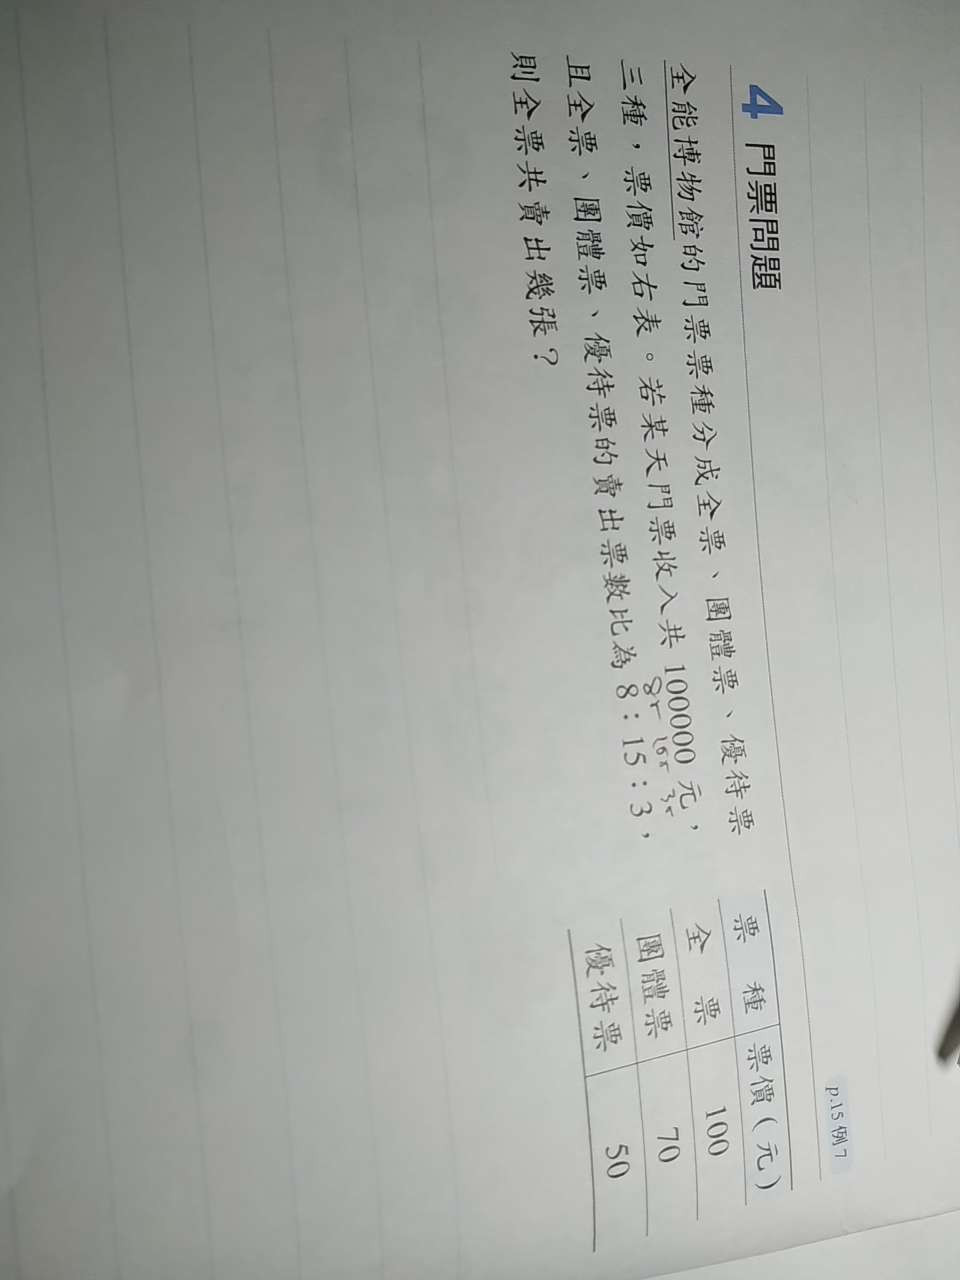 p.15 例 7
4 門票問題
全能博物館的門票票種分成全票、團體票、優待票
三種，票價如右表。若某天門票收入共 100000 元，
8r 16r 3r
且全票、團體票、優待票的賣出票數比為 8：15：3，
則全票共賣出幾張？
票 種 票價(元)
全 票 100
團體票 70
優待票 50